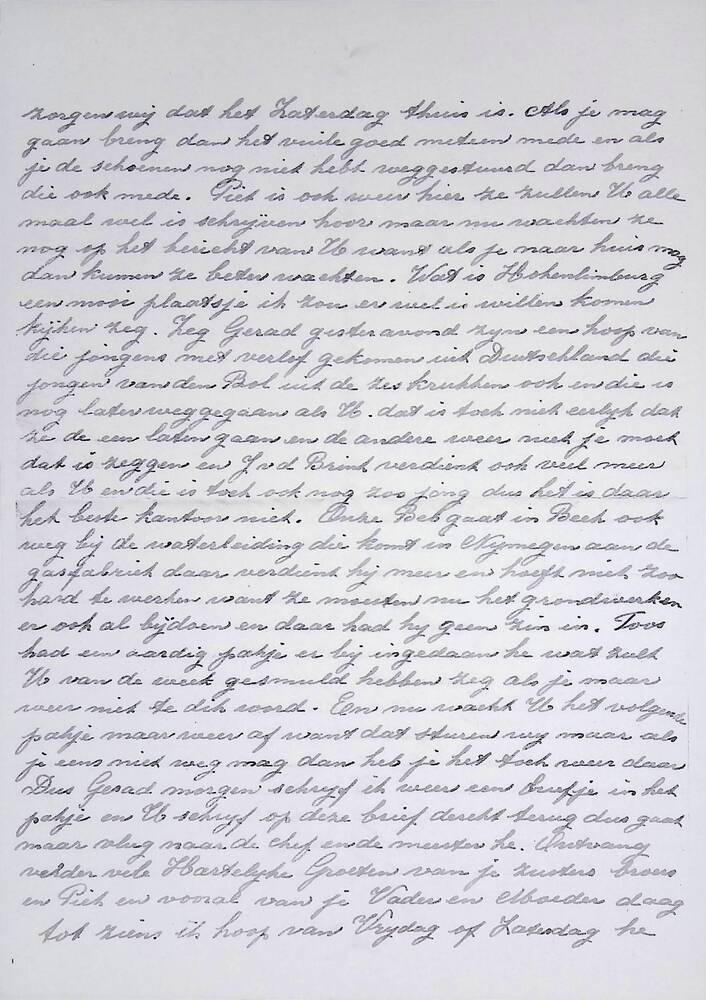 zorgen wij dat het Zaterdag thuis is. Als je mag
gaan breng dan het vuile goed meteen mede en als
je de schoenen nog niet hebt weggestuurd dan breng
die ook mede. Piet is ook weer hier ze zullen U alle
maal wel is schrijven hoor maar nu wachten ze
nog op het bericht van U want als je naar huis mag
dan kunnen ze beter wachten. Wat is Hohenlimburg
een mooi plaatsje ik zou er wel is willen komen
kijken zeg. Zeg Gerad gisteravond zyn een hoop van
die jongens met verlof gekomen uit Duutschland die
jongen van den Bol uit de zes krukken ook en die is
nog later weggegaan als U. dat is toch niet eerlyk dat
ze de een laten gaan en de andere weer niet je moet
dat is zeggen en J v d Brink verdient ook veel meer
als U en die is toch ook nog zoo jong dus het is daar
het beste kantoor niet. Onze Beb gaat in Beek ook
weg bij de waterleiding die komt in Nymegen aan de
gasfabriek daar verdient hy meer en hoeft niet zoo
hard te werken want ze moesten nu het grondwerken
er ook al bijdoen en daar had hy geen zin in. Toos
had een aardig pakje er bij ingedaan he wat zult
U van de week gesmuld hebben zeg als je maar
weer niet te dik word. En nu wacht U het volgende
pakje maar weer af want dat sturen wy maar als
je eens niet weg mag dan heb je het toch weer daar
Dus Gerad morgen schryf ik weer een briefje in het
pakje en U schryf op deze brief derekt terug dus gaat
maar vlug naar de chef en de meester he. Ontvang
verder vele Hartelyke Groeten van je zusters broers
en Piet en vooral van je Vader en Moeder daag
tot ziens ik hoop van Vrydag of Zaterdag he